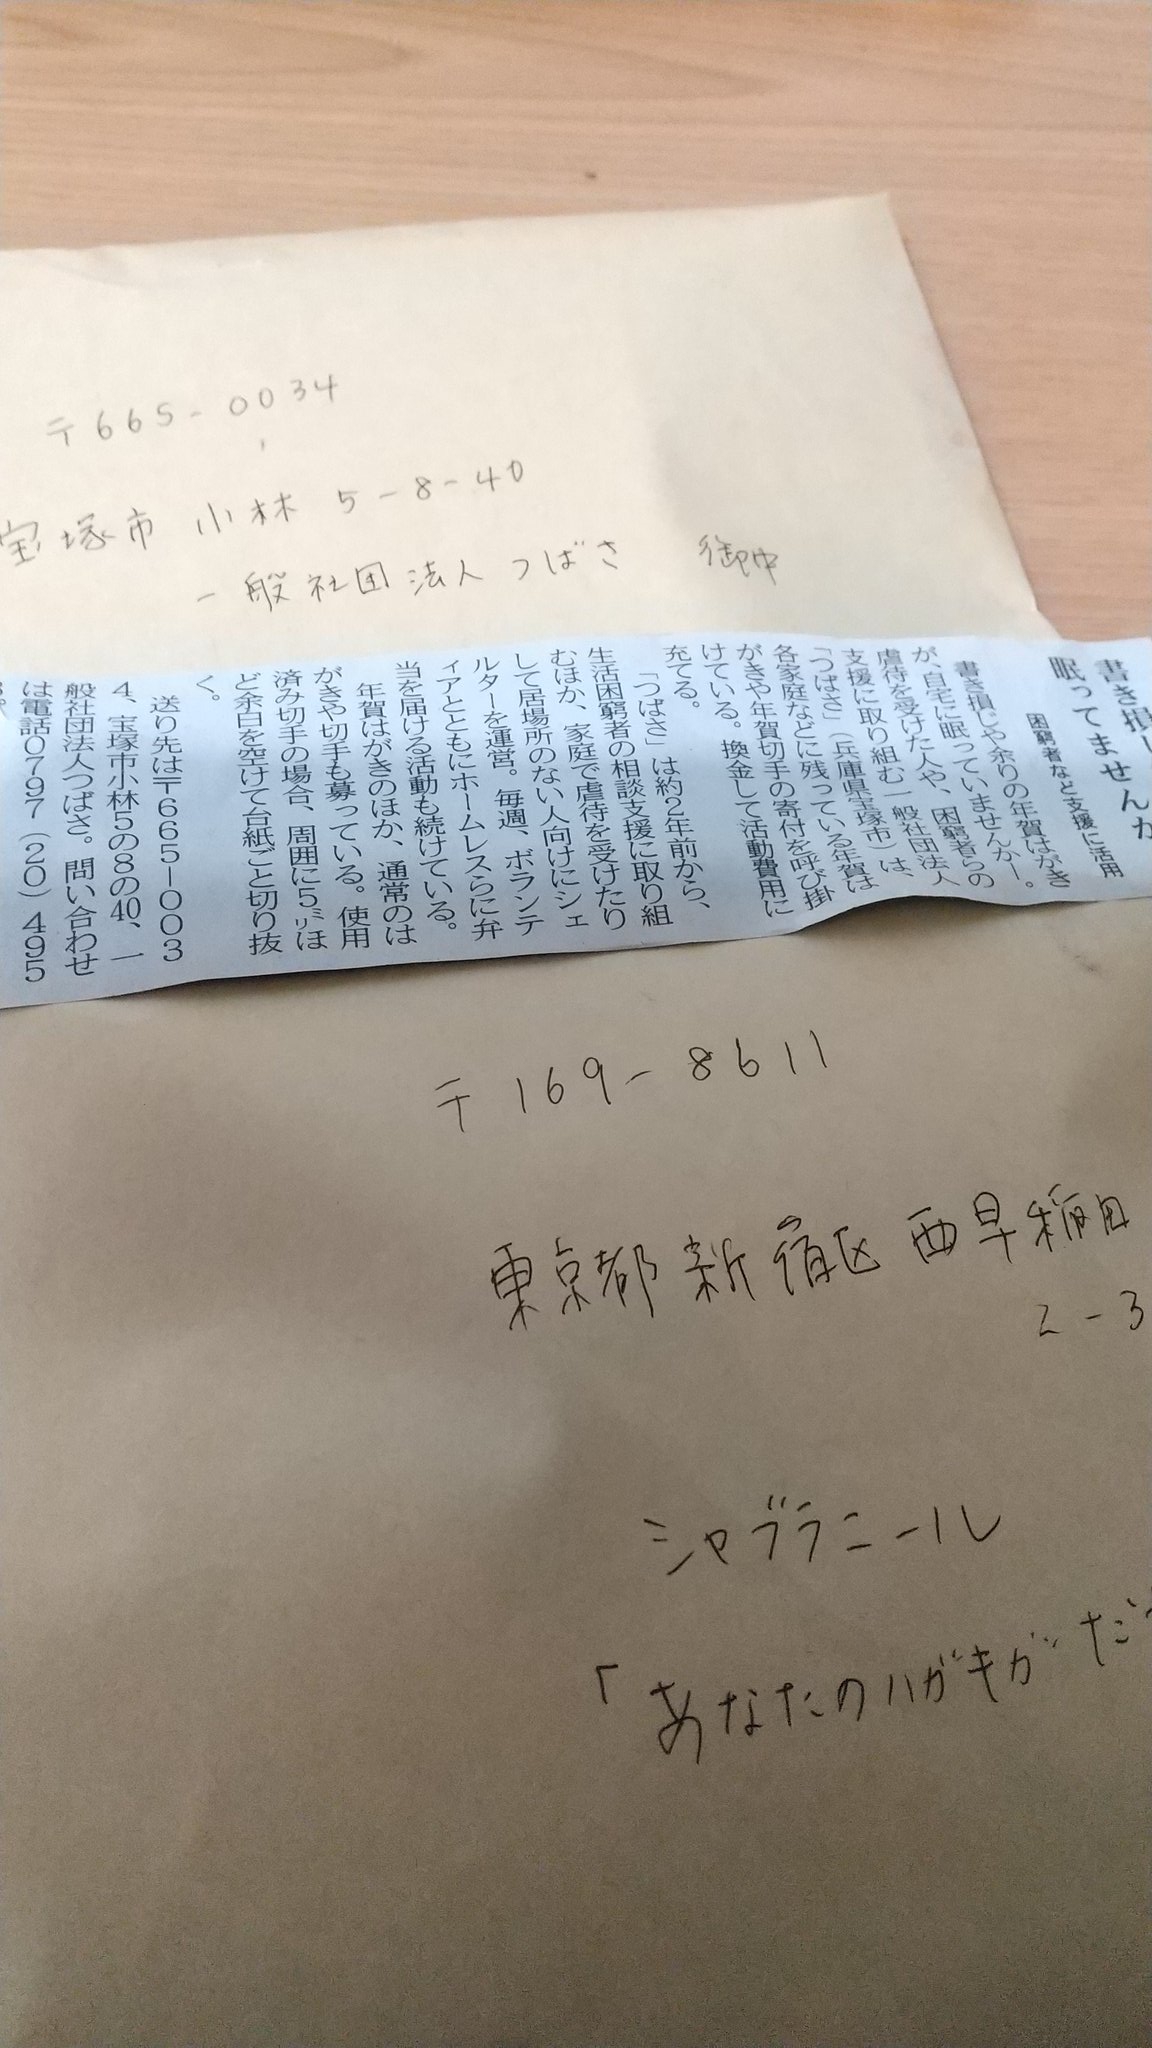 〒665-0034
宝塚市 小林 5-8-40
一般社団法人つばさ 御中
書き損じ
眠ってませんか
困窮者など支援に活用
書き損じや余りの年賀はがき
が、自宅に眠っていませんか―。
虐待を受けた人や、困窮者らの
支援に取り組む一般社団法人
「つばさ」（兵庫県宝塚市）は、
各家庭などに残っている年賀は
がきや年賀切手の寄付を呼び掛
けている。換金して活動費用に
充てる。
「つばさ」は約2年前から、
生活困窮者の相談支援に取り組
むほか、家庭で虐待を受けたり
して居場所のない人向けにシェ
ルターを運営。毎週、ボランテ
ィアとともにホームレスらに弁
当を届ける活動も続けている。
年賀はがきのほか、通常のは
がきや切手も募っている。使用
済み切手の場合、周囲に5㍉ほ
ど余白を空けて台紙ごと切り抜
く。
送り先は〒665―003
4、宝塚市小林5の8の40、一
般社団法人つばさ。問い合わせ
は電話0797（20）495
〒169-8611
東京都新宿区西早稲田
2-3
シャプラニール
「あなたのハガキが だ